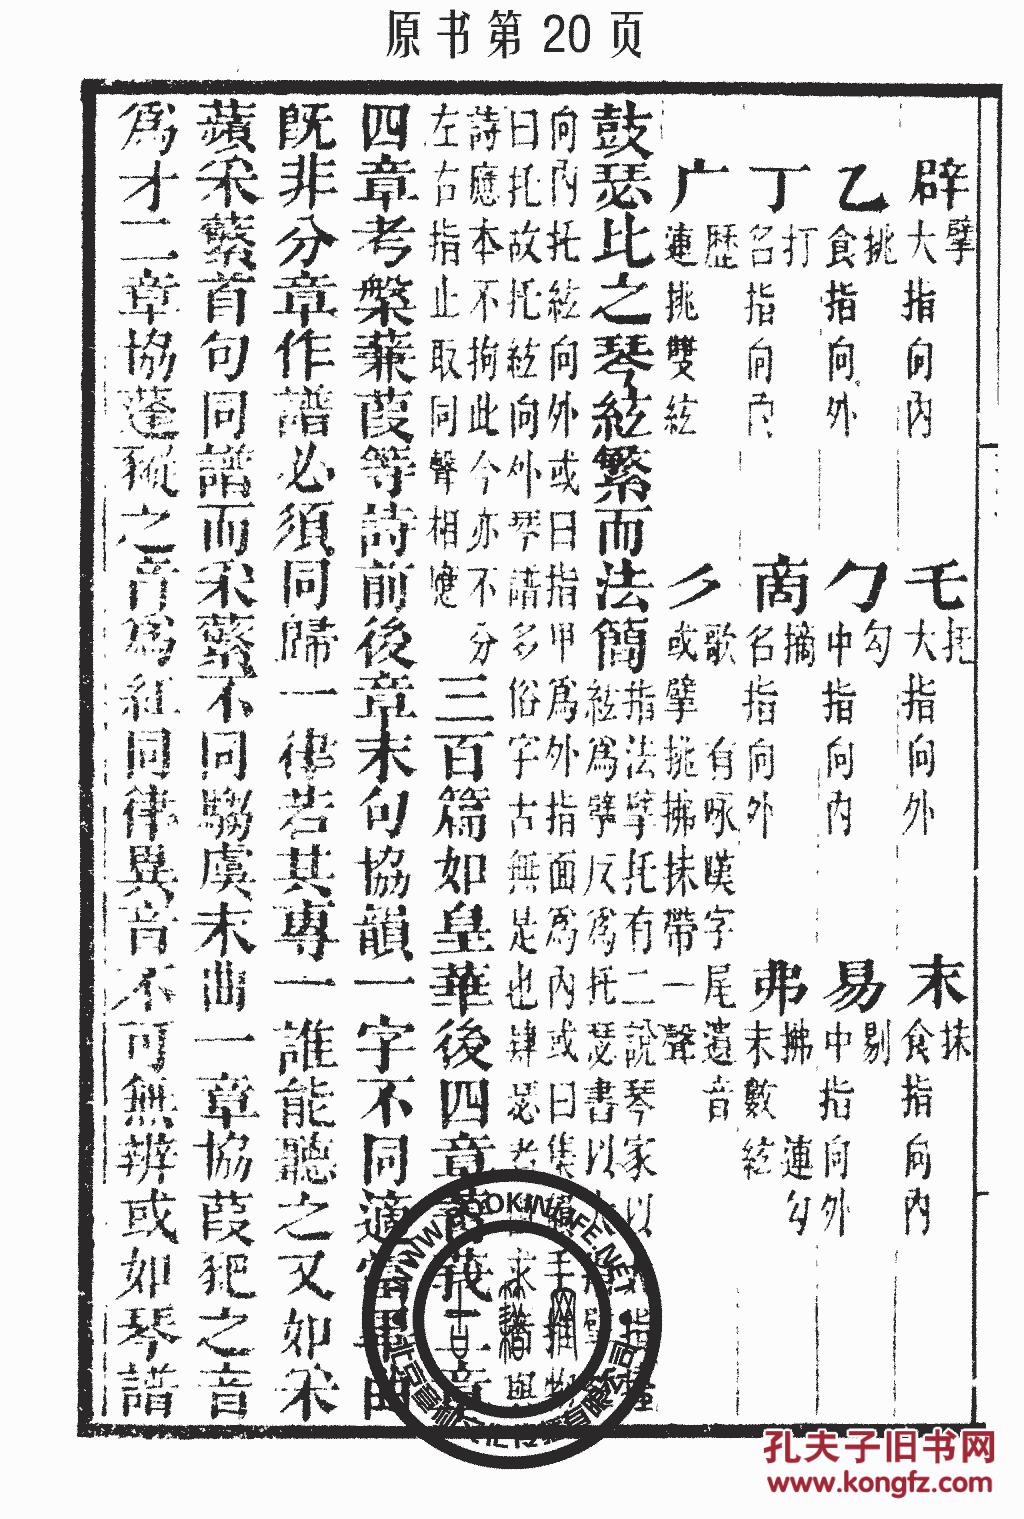 原书第20页
辟 擘 大指向內
乇 托 大指向外
末 抹 食指向內
乙 挑 食指向外
勹 勾 中指向內
易 剔 中指向外
丁 打 名指向內
啇 摘 名指向外
弗 拂 末數絃 連勾
广 歷 連挑雙絃
彡 歌 有咏嘆字尾遺音
或擘挑拂抹帶一聲
鼓瑟此之琴絃繁而法簡
指法擘托有二說琴家以
絃為擘反為托瑟書以
向內托絃向外或曰指甲為外指面為內或曰集
曰托故托絃向外琴譜多俗字古無是也肄瑟者
詩應本不拘此今亦不分
左右指止取同聲相應
三百篇如皇華後四章
四章考槃葉葭等詩前後章末句協韻一字不同適
既非分章作譜必須同歸一律若其專一誰能聽之又如采
蘋采蘩首句同譜而采蘩不同騶虞末曲一章協葭豝之音
為才二章協蓬豵之音為紅同律異音不可無辨或如琴譜
WWW.BOOKINLIFE.NET
孔夫子旧书网
www.kongfz.com